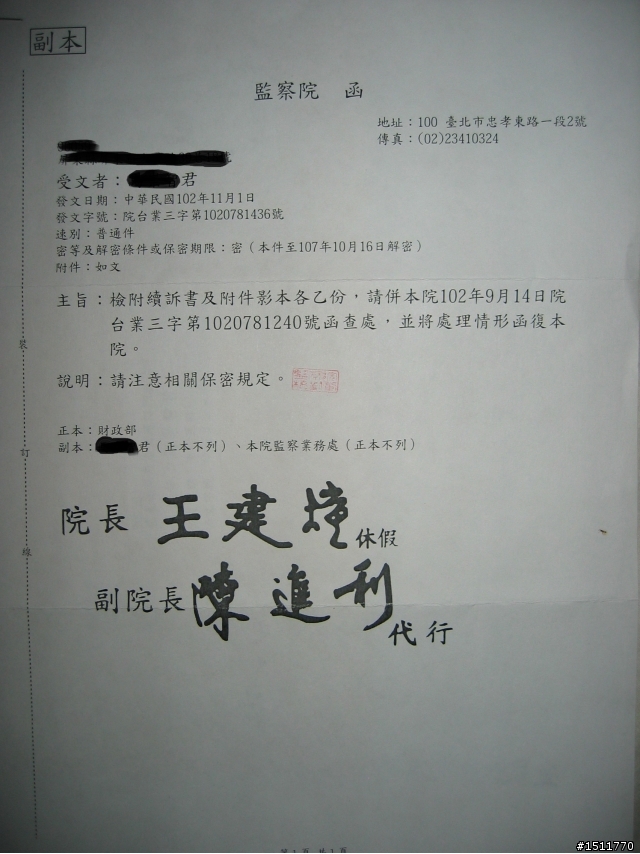 副本
監察院 函
地址：100 臺北市忠孝東路一段2號
傳真：(02)23410324
受文者：君
發文日期：中華民國102年11月1日
發文字號：院台業三字第1020781436號
速別：普通件
密等及解密條件或保密期限：密（本件至107年10月16日解密）
附件：如文
主旨：檢附續訴書及附件影本各乙份，請併本院102年9月14日院
台業三字第1020781240號函查處，並將處理情形函復本
院。
說明：請注意相關保密規定。
正本：財政部
副本：君（正本不列）、本院監察業務處（正本不列）
院長 王建煊 休假
副院長 陳進利 代行
裝
訂
線
第1頁 共1頁
#1511770